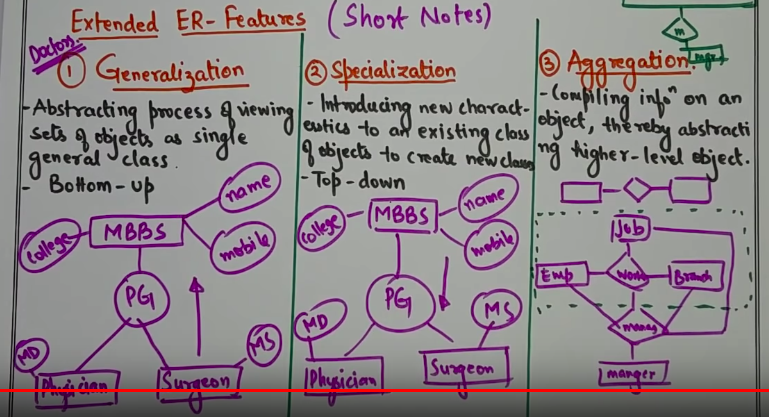 Extended ER-Features (Short Notes)
Doctors
① Generalization
-Abstracting process of viewing
sets of objects as single
general class.
- Bottom-up
name
College
MBBS
mobile
PG
MD
MS
Physician
Surgeon
② Specialization
- Introducing new charact-
eristics to an existing class
of objects to create new class
-Top-down
name
College
MBBS
mobile
PG
MD
MS
Physician
Surgeon
m
mgr
③ Aggregation
-Compiling infoⁿ on an
object, thereby abstracti
ng higher-level object.
Job
Emp
Work
Branch
manag
manger